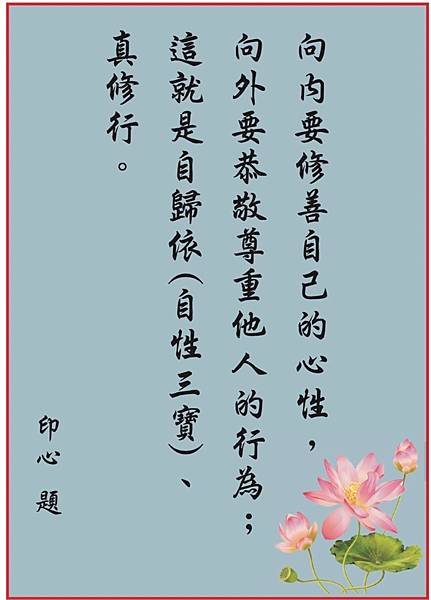 向內要修善自己的心性，
向外要恭敬尊重他人的行為；
這就是自歸依(自性三寶)、
真修行。
印心 題